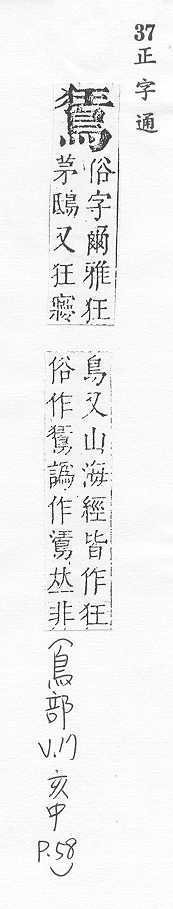 37
正字通
鵟
俗字爾雅狂
茅鴟又狂㝱
鳥又山海經皆作狂
俗作鵟譌作丛非
(鳥部 V.17 亥中 P.58)